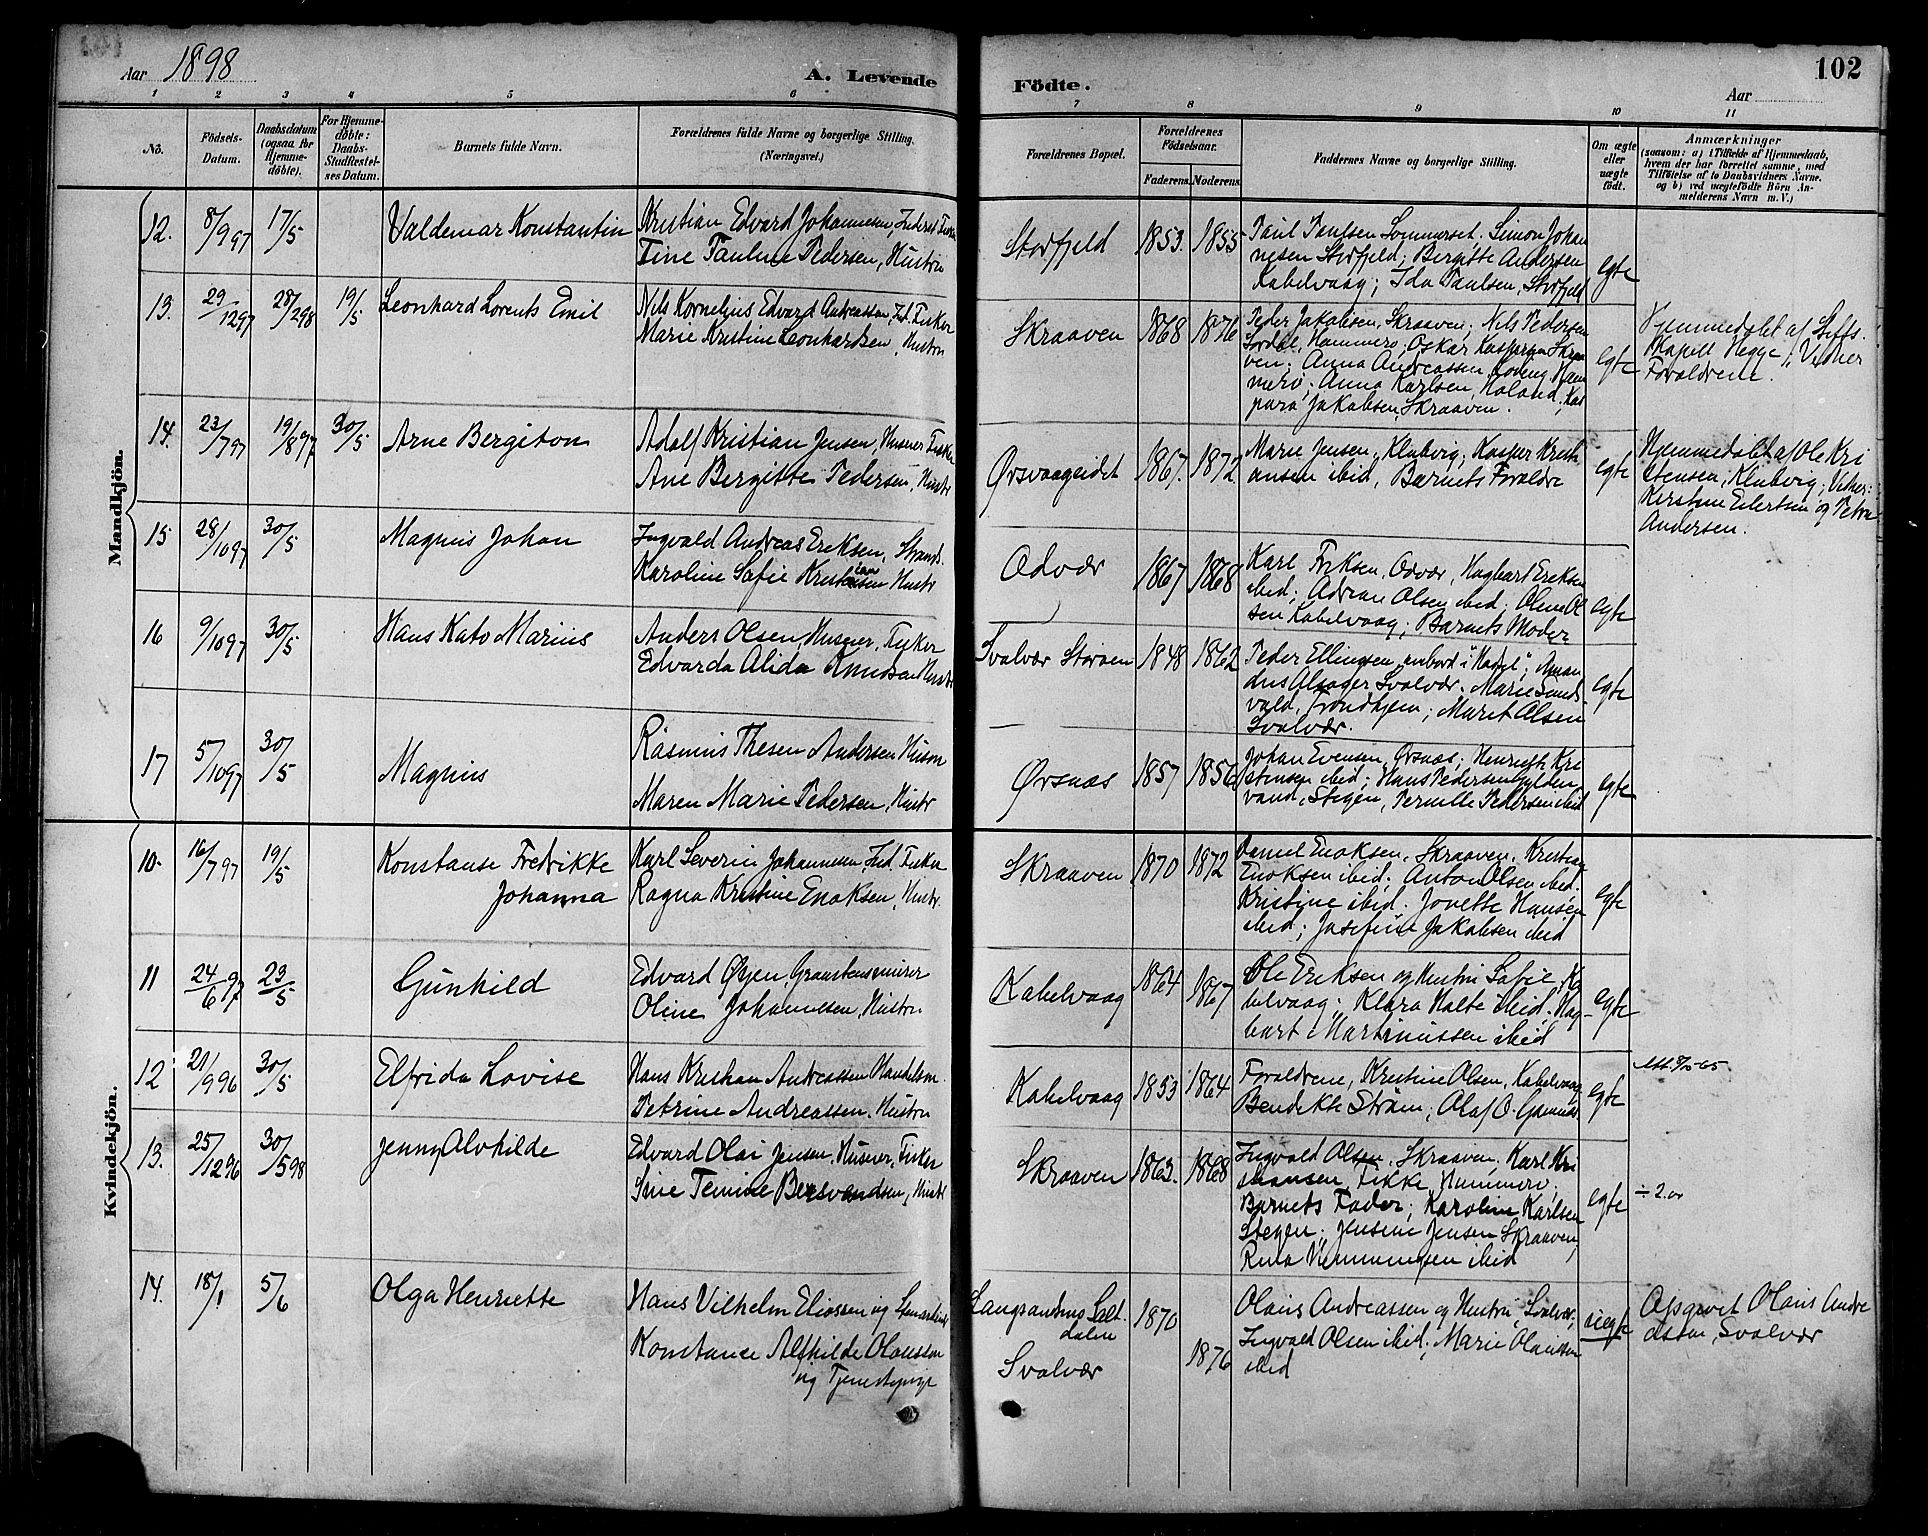 Aar 1898
A. Levende
Födte.
102
Aar
1 2 3 4 5 6 7 8 9 10 11
No.
Födsels-
Datum.
Daabsdatum
(ogsaa for
Hjemme-
döbte).
For Hjemme-
döbte:
Daabs-
Stadfæstel-
ses Datum.
Barnets fulde Navn.
Forældrenes fulde Navne og borgerlige Stilling.
(Næringsvei.)
Forældrenes Bopæl.
Forældrenes
Födselsaar.
Faderens. Moderens.
Faddernes Navne og borgerlige Stilling.
Om ægte
eller
uægte
födt.
Anmærkninger
(saasom: a) i Tilfælde af Hjemmedaab,
hvem der har forrettet samme, med
Tilföielse af to Daabsvidners Navne.
og b) ved uægtefödte Börn An-
melderens Navn m. V.)
Mandkjön.
12. 8/9 97 17/5 Valdemar Konstantin
Kristian Edvard Johannesen, Inderst Fisker
Tine Pauline Pedersen, Hustru
Storfjeld 1853. 1855
Paul Paulsen Sommerset. Simon Johan
nesen Storfjeld; Bergitte Andersen
Kabelvaag; Ida Paulsen, Storfjeld
egte
13. 29/12 97 28/2 98 19/5 Leonhard Lorents Emil
Nils Kornelius Edvard Andreassen, Ind. Fisker
Marie Kristine Leonhardsen, Hustru
Skraaven 1868 1876
Peder Jakobsen, Skraaven; Nils Pedersen
Hammerø; Oskar Kaspersen Skraa
ven; Anna Andreassen Ham
merø; Anna Karlsen, Holand; Kas
para Jakobsen, Skraaven.
egte
Hjemmedøbt af Stifts
kapell Hegge; Vidner
Forældrene.
14. 23/7 97 19/8 97 30/5 Arne Bergiton
Adolf Kristian Jensen, Husmer Fisker
Ane Bergitte Pedersen, Hustr
Ørsvaageidet 1867. 1872
Marie Jensen, Klubvig; Kasper Kristi
ansen ibid, Barnets Forældre
egte
Hjemmedøbt af Ole Kri
stensen, Klubvig; Vidner:
Kirstine Eilertsen og Petra
Andersen.
15 28/10 97 30/5 Magnus Johan
Ingvald Andreas Eriksen, Strands.
Karoline Sofie Kristiansen Hustr
Odvær 1867 1868
Karl Eriksen, Odvær, Hagbart Eriksen
ibid; Adrian Olsen ibid; Oline Ol
sen Kabelvaag; Barnets Moder
egte
16 9/10 97 30/5 Hans Kato Marius
Anders Olsen, Husmer, Fisker
Edvarda Alida Knudsen Hustr
Svolvær Storøen 1848 1862
Peder Ellingsen ombord i "Havfal"; Aman
dus Alsager Svolvær. Marie Sunds
vald, Trondhjem; Marit Olsen
Svolvær.
egte
17 5/10 97 30/5 Magnus
Rasmus Thesen Andersen Husm
Maren Marie Pedersen, Hustr
Ørsnæs 1857 1856
Johan Evensen, Ørsnæs; Henriette Kri
stensen ibid; Hans Pedersen Gylden
vand, Stegen, Pernille Pedersen ibid
egte
Kvindekjön.
10. 16/7 97 19/5 Konstanse Fredrikke
Johanna
Karl Severin Johannesen, Ind. Fisker
Ragna Kristine Enoksen, Hustr.
Skraaven 1870 1872
Daniel Enoksen, Skraaven, Kristine
Enoksen ibid. Anton Olsen ibid.
Kristine ibid. Jovette Hansen
ibid; Josefine Jakobsen ibid
egte
11 24/6 97 23/5 Gunhild
Edvard Øyen, Graastensmurer
Oline Johannesen, Hustru
Kabelvaag 1864 1867
Ole Eriksen og Hustru Sofie, Ka
belvaag. Klara Holte ibid. Hag
bart Martinussen ibid
egte
12 21/9 96 30/5 Elfrida Lovise
Hans Kristian Andreassen Handelsm.
Petrine Andreassen, Hustru
Kabelvaag 1853 1864
Forældrene, Kristine Olsen, Kabelvaag
Bendikte Strøm; Olaf O.
egte
Att. 8/5-65
13. 25/12 96 30/5 98 Jenny Alvhilde
Edvard Olai Jensen. Husmer, Fisker
Sine Temine Bersvendsen, Hustr
Skraaven 1863. 1868
Ingvald Olsen, Skraaven, Karl Kri
stiansen, Fikke, Hammerø.
Barnets Fader; Karoline Karlsen
Stegen; Jensine Jensen Skraaven,
Rina Hemmingsen ibid
egte
÷ 2. ar
14. 18/1 5/6 Olga Henriette
Hans Vilhelm Eliassen og
Konstanse Alfhilde Olaussen
ug Tjenestepige
Langrandnes Salt
dalen
Svolvær 1870 1876
Olaus Andreassen og Hustru, Svolvær;
Ingvald Olsen ibid; Marie Olaussen
ibid
uegte
Opgivet Olaus Andre
assen, Svolvær